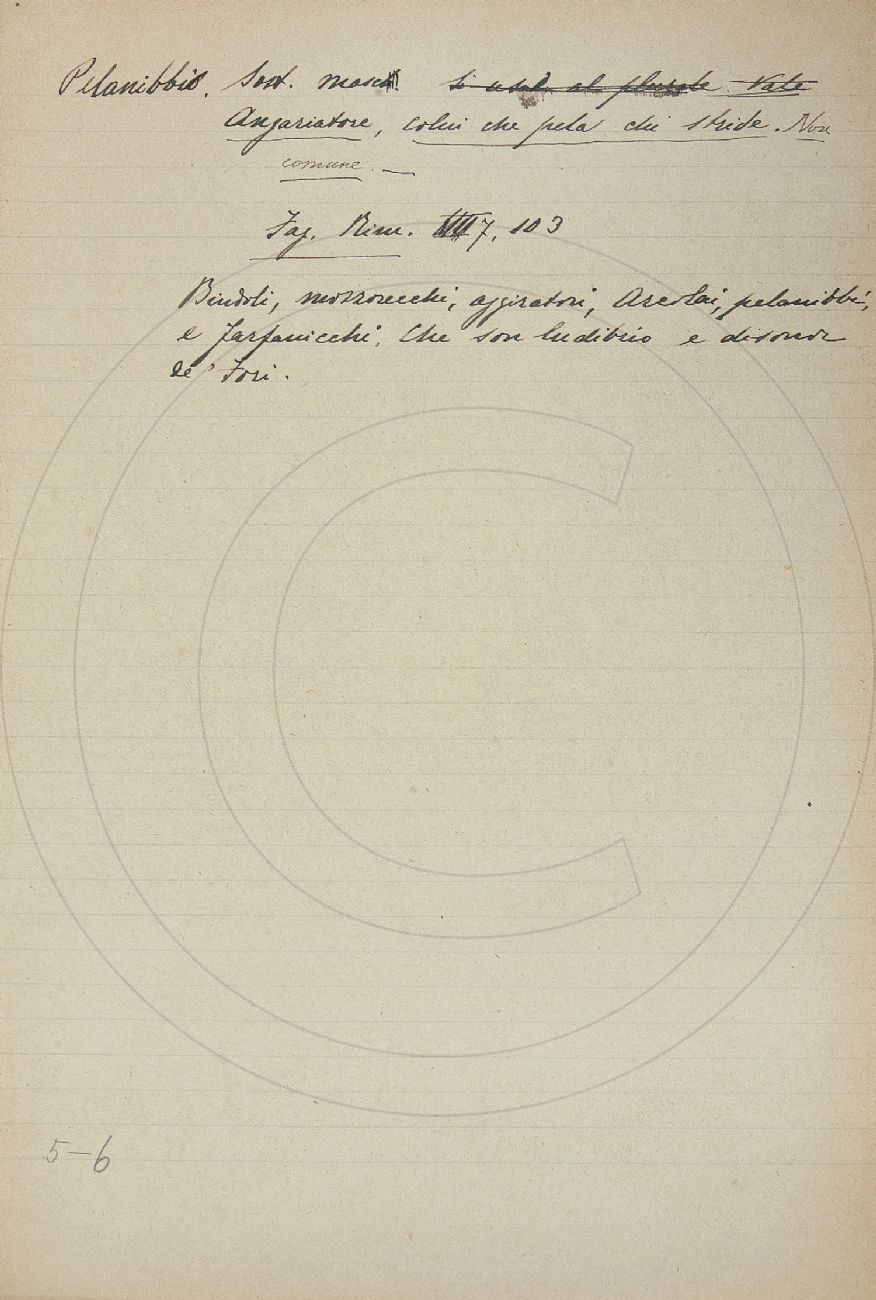 Pelanibbio. Sost. masch. Si usa al plurale Vale
Angariatore, colui che pela chi stride. Non
comune. —
Fag. Rim. 7, 103
Bindoli, mozzorecchi, aggiratori, Arcolai, pelanibbi,
e farfanicchi, Che son ludibrio e disonor
de' Fori.
5-6